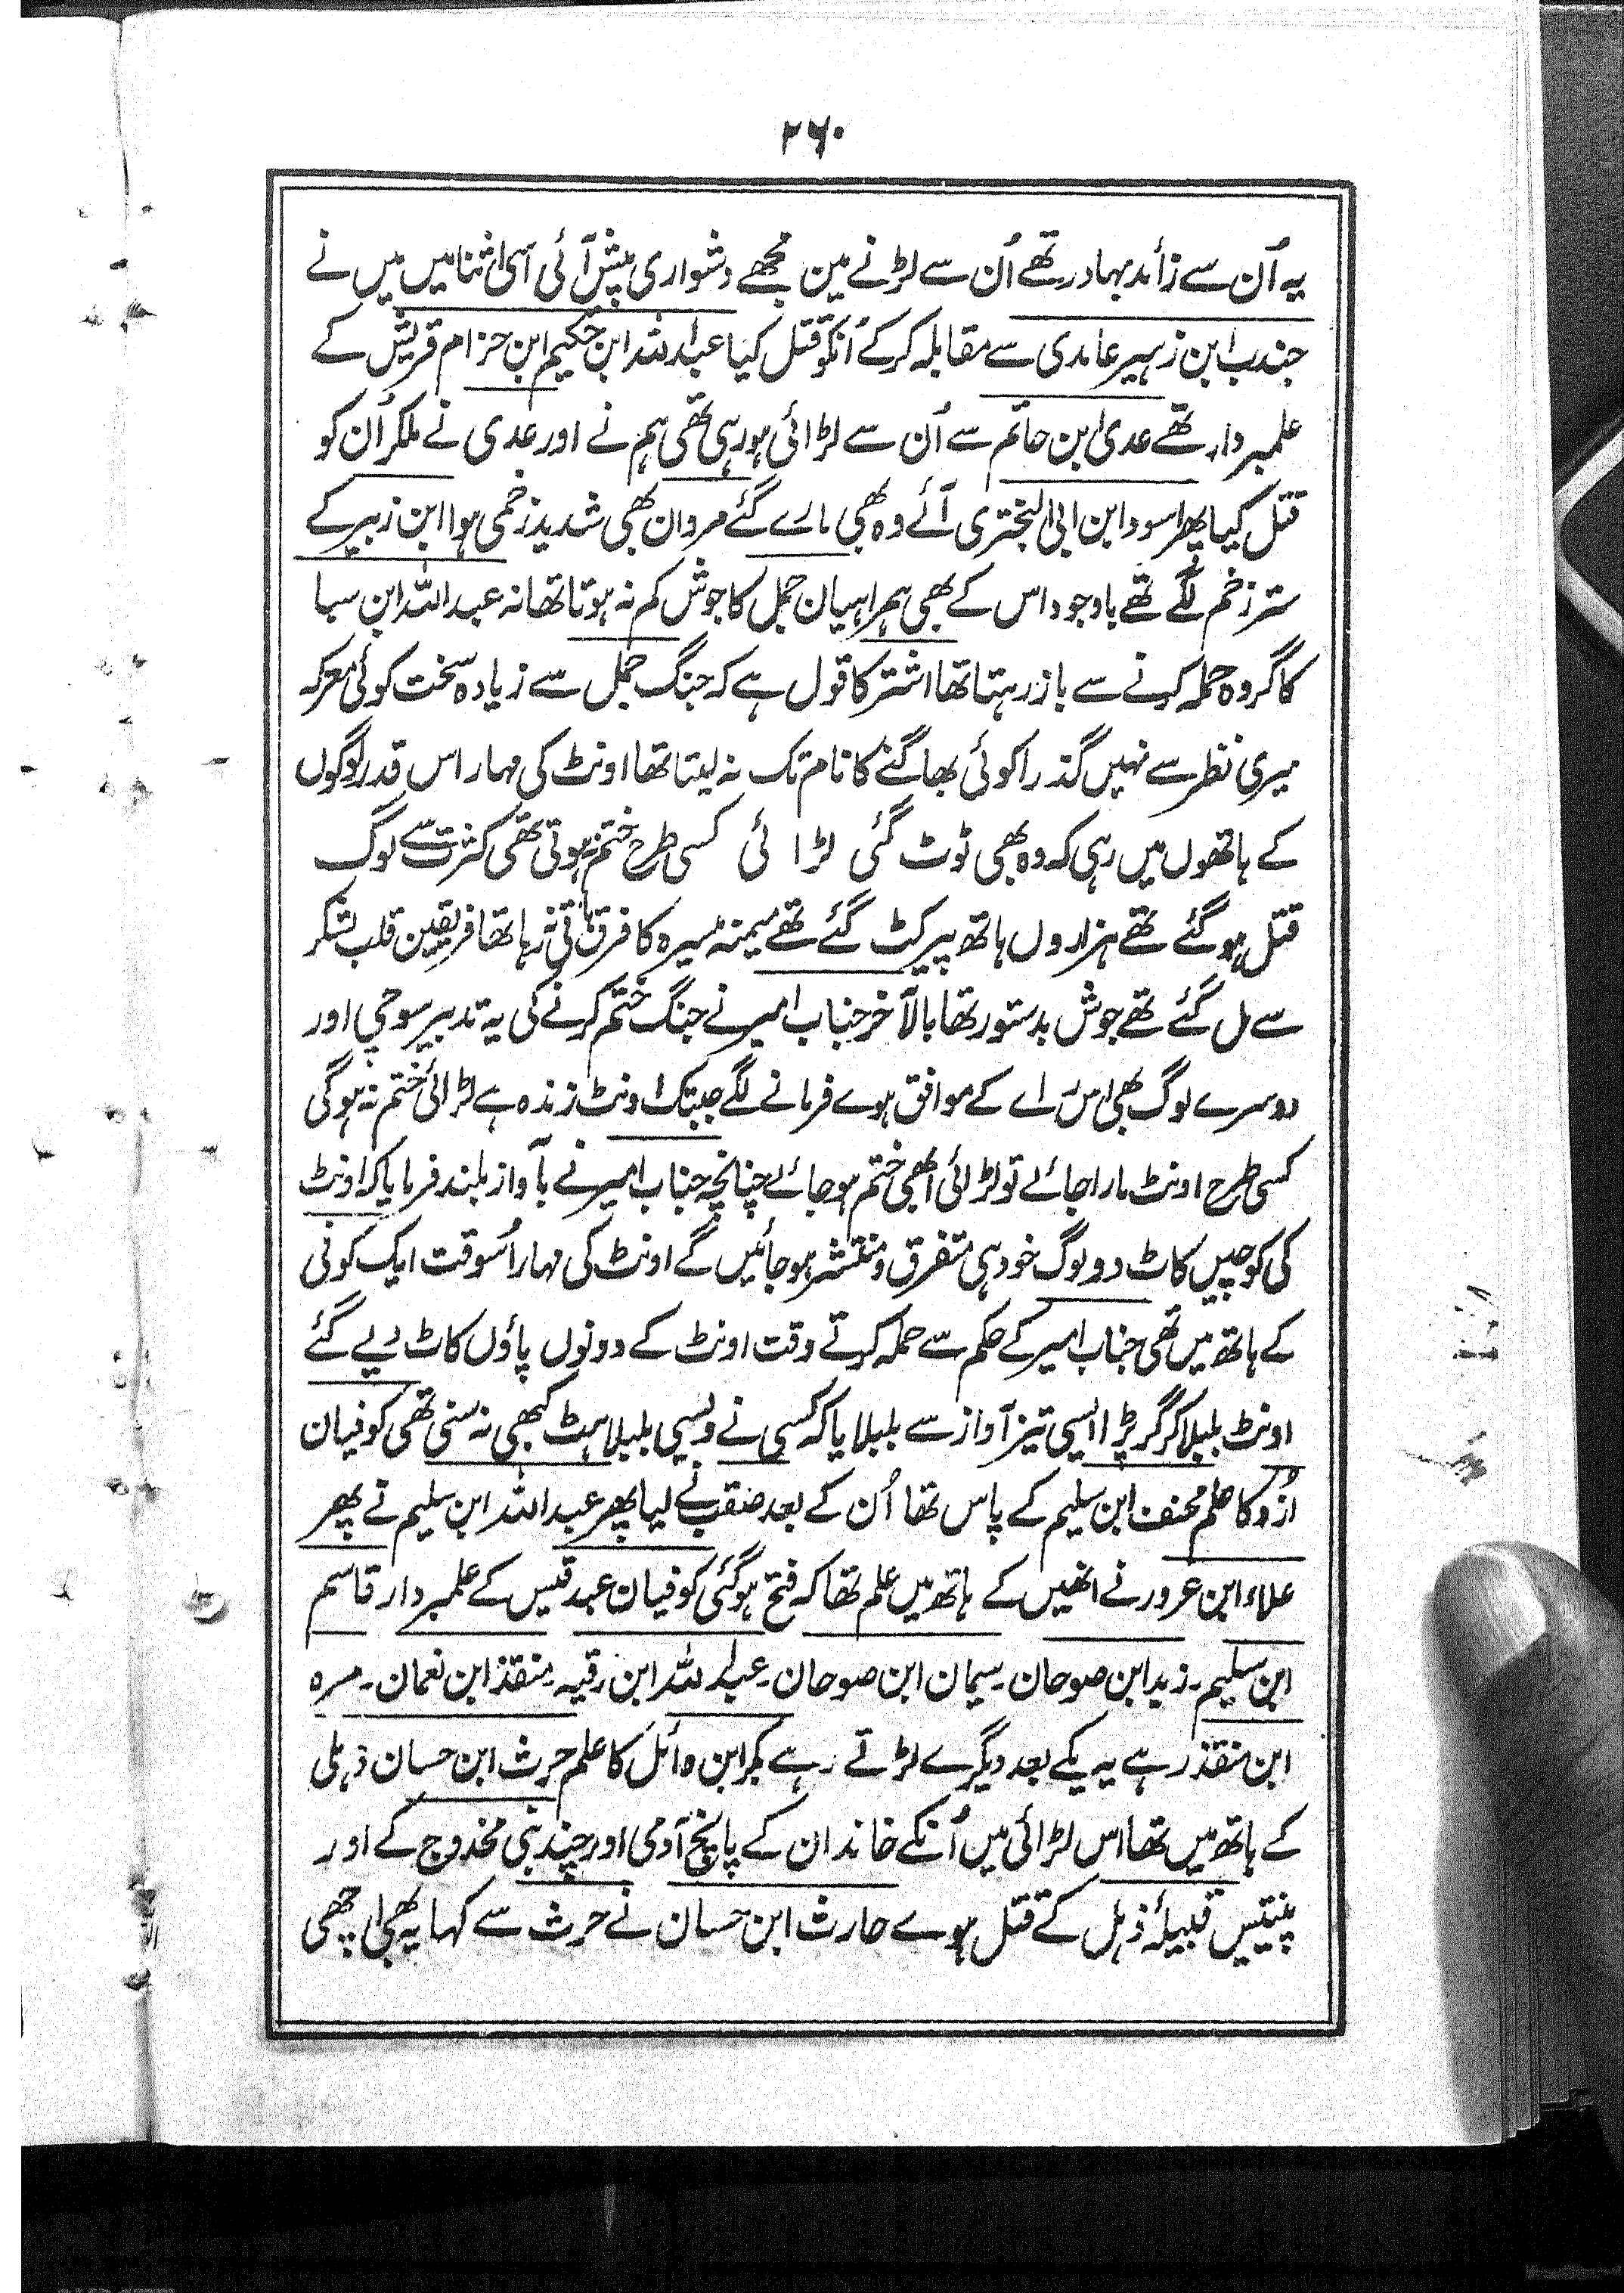 ۲۶۰
یہ اُن سے زائد بہادر تھے اُن سے لڑنے مین مجھے دشواری پیش آئی اسی اثنا میں میں نے
جندب ابن زہیر عامدی سے مقابلہ کرکے اُنکو قتل کیا عبداللہ ابن حکیم ابن حزام قریش کے
علمبردار تھے عدی ابن حاتم سے اُن سے لڑائی ہورہی تھی ہم نے اور عدی نے ملکر اُن کو
قتل کیا پھر اسود ابن ابی البختری آئے وہ بھی مارے گئے مروان بھی شدید زخمی ہوا ابن زبیر کے
ستر زخم لگے تھے باوجود اس کے بھی ہمراہیان جمل کا جوش کم نہ ہوتا تھا نہ عبداللہ ابن سبا
کا گروہ حملہ کرنے سے باز رہتا تھا اشتر کا قول ہے کہ جنگ جمل سے زیادہ سخت کوئی معرکہ
میری نظر سے نہیں گذرا کوئی بھاگنے کا نام تک نہ لیتا تھا اونٹ کی مہار اس قدر لوگوں
کے ہاتھوں میں رہی کہ وہ بھی ٹوٹ گئی لڑائی کسی طرح ختم نہ ہوتی تھی کثرت سے لوگ
قتل ہوگئے تھے ہزاروں ہاتھ پیر کٹ گئے تھے میمنہ میسرہ کا فرق باقی نہ رہا تھا فریقین قلب لشکر
سے مل گئے تھے جوش بدستور تھا بالآخر جناب امیر نے جنگ ختم کرنے کی یہ تدبیر سوچی اور
دوسرے لوگ بھی اس راے کے موافق ہوے فرمانے لگے جبتک اونٹ زندہ ہے لڑائی ختم نہ ہوگی
کسی طرح اونٹ مارا جائے تو لڑائی ابھی ختم ہوجائے چنانچہ جناب امیر نے بآواز بلند فرمایا کہ اونٹ
کی کوچیں کاٹ دو لوگ خود ہی متفرق و منتشر ہوجائیں گے اونٹ کی مہار اُسوقت ایک کوفی
کے ہاتھ میں تھی جناب امیر کے حکم سے حملہ کرتے وقت اونٹ کے دونوں پاؤں کاٹ دیے گئے
اونٹ بلبلا کر گر پڑا ایسی تیز آواز سے بلبلایا کہ کسی نے ویسی بلبلاہٹ کبھی نہ سنی تھی کوفیان
ازد کا علم مخنف ابن سلیم کے پاس تھا اُن کے بعد صقعب نے لیا پھر عبداللہ ابن سلیم نے پھر
علاء ابن عرور نے انھیں کے ہاتھ میں علم تھا کہ فتح ہوگئی کوفیان عبد قیس کے علمبردار قاسم
ابن سلیم۔ زید ابن صوحان۔ سیمان ابن صوحان۔ عبداللہ ابن رقیہ۔ منقذ ابن نعمان۔ مرہ
ابن منقذ رہے یہ یکے بعد دیگرے لڑتے رہے بکر ابن وائل کا علم حرث ابن حسان ذہلی
کے ہاتھ میں تھا اس لڑائی میں اُنکے خاندان کے پانچ آدمی اور چند بنی مخدوج کے اور
پنیتیس قبیلۂ ذہل کے قتل ہوے حارث ابن حسان نے حرث سے کہا یہ بھی اچھی